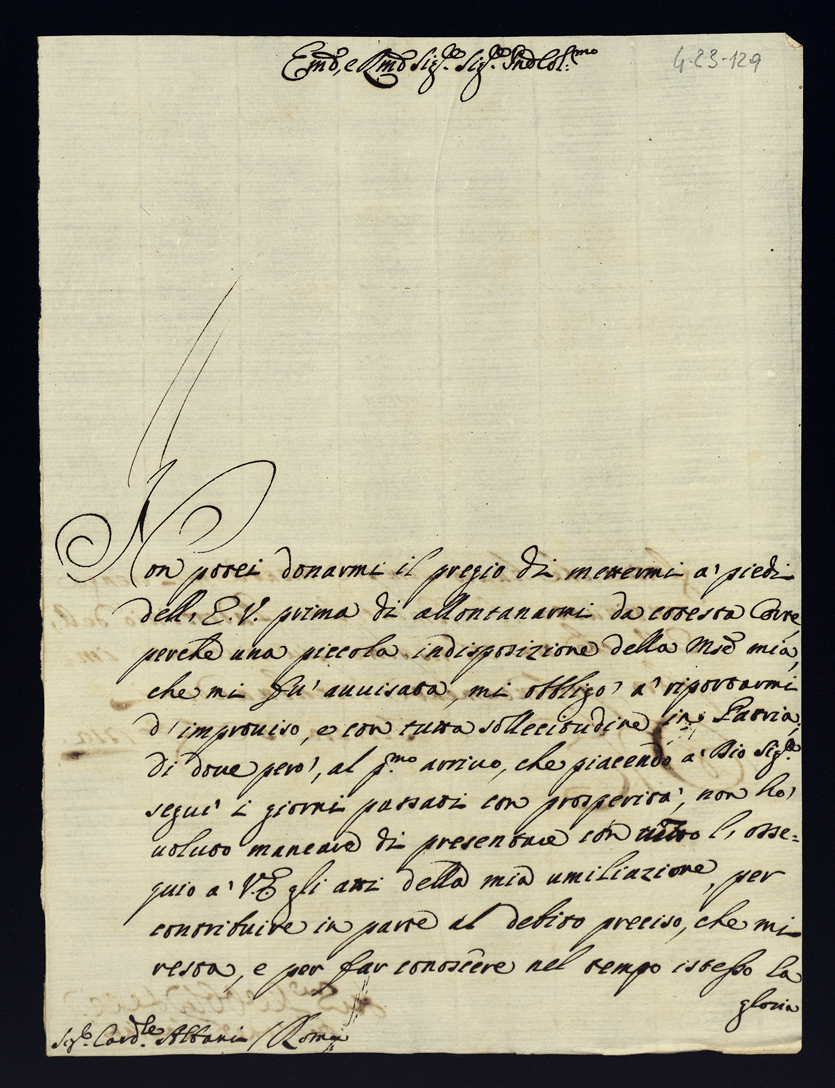 Em̃o, e Rm̃o Sig.re Sig.re Pñe Col.mo
4-23-129
Non potei donarmi il pregio di mettermi a' piedi
dell' E. V. prima di allontanarmi da cotesta Corte,
perche una piccola indisposizione della
che mi fu' auuisata, mi obbligo' a' riportarmi
d' improuiso, e con tutta sollecitudine in Patria;
di doue pero', al p.mo arriuo, che piacendo a' Dio Sig.re
segui' i giorni passati con prosperita', non ho'
uoluto mancare di presentare con tutto l' osse=
quio a' V.E gli atti della mia umiliazione, per
contribuire in parte al debito preciso, che mi
resta, e per far conoscere nel tempo istesso la
gloria
Sig.r Card.le Albani / Roma